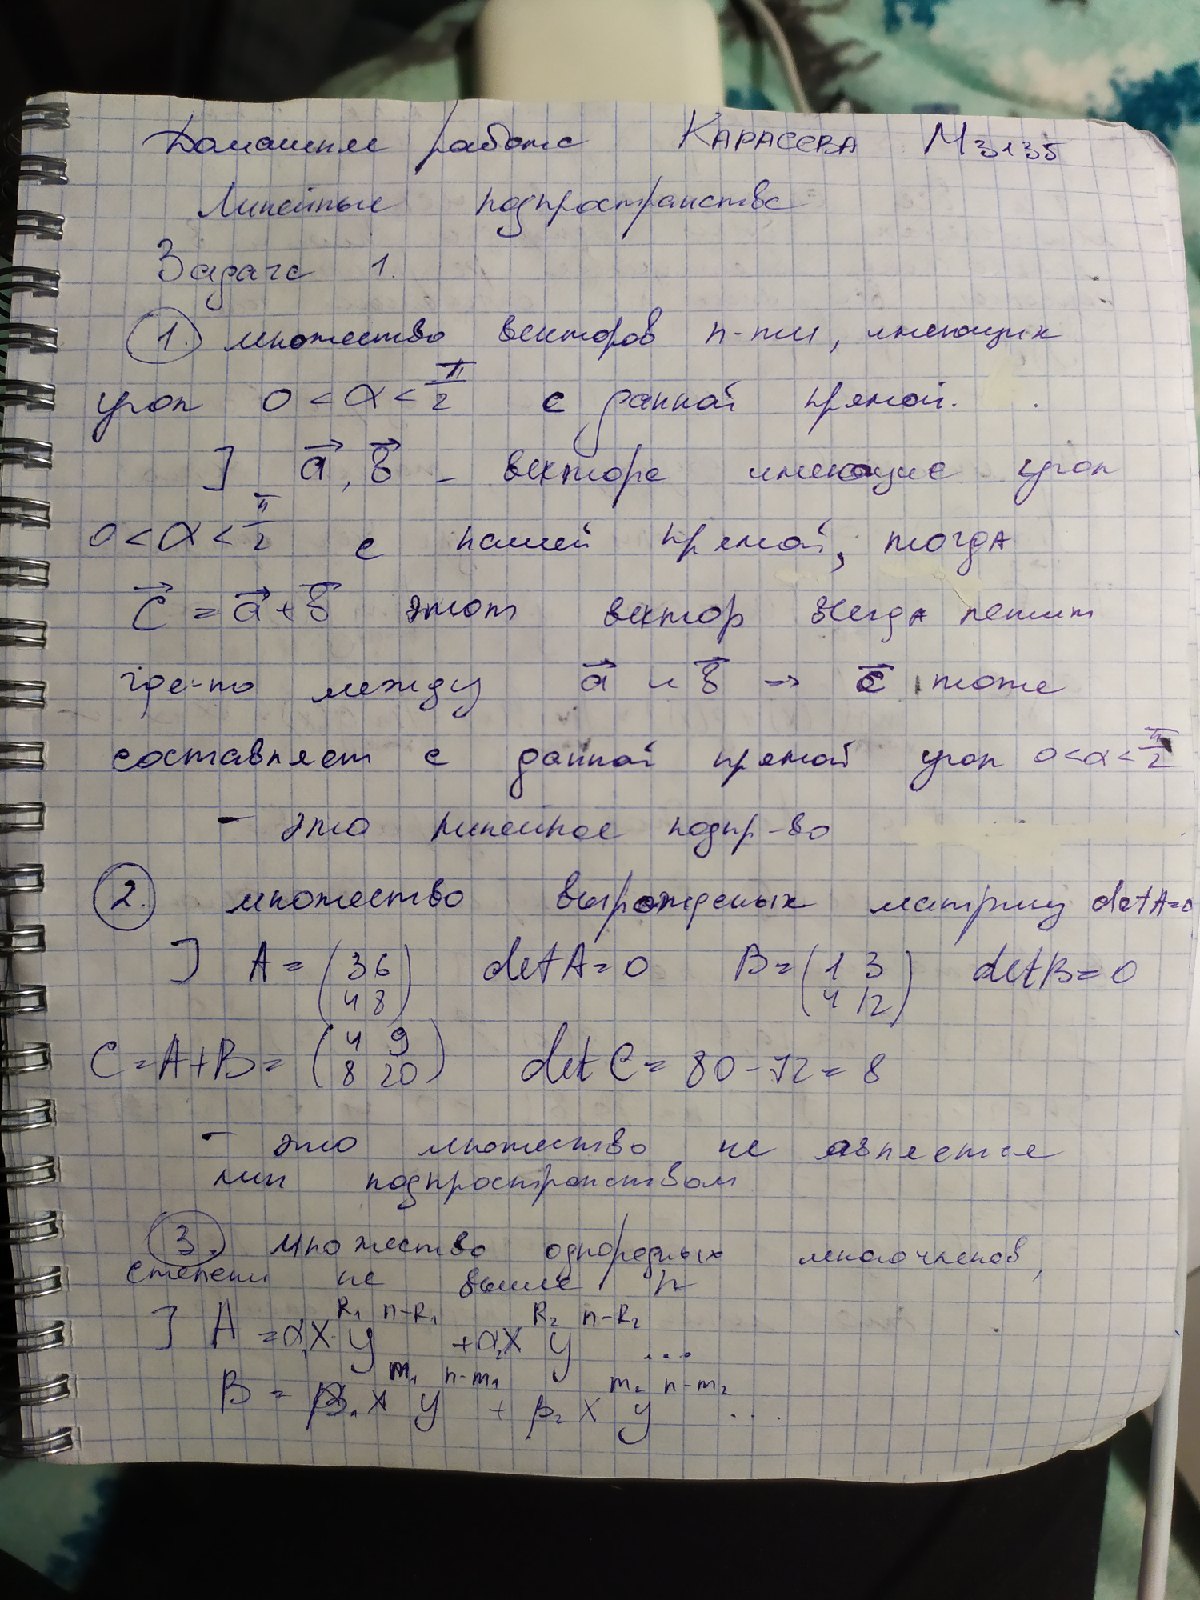 Домашняя работа КАРАСЕВА М3135
Линейные подпространства
Задача 1.
1. множество векторов п-ти, имеющих
угол 0 < α < π/2 с данной прямой.
] a⃗, b⃗ - вектора имеющие угол
0 < α < π/2 с нашей прямой, тогда
c⃗ = a⃗ + b⃗ этот вектор всегда лежит
где-то между a⃗ и b⃗ → c⃗ тоже
составляет с данной прямой угол 0<α<π/2
- это линейное подпр-во
2. множество вырожденых матриц det A=0
] A = (3 6; 4 8) det A = 0 B = (1 3; 4 12) det B = 0
C = A + B = (4 9; 8 20) det C = 80 - 72 = 8
- это множество не является
лин подпространством
3. множество однородных многочленов,
степени не выше n
] A = α₁x^{R₁} y^{n-R₁} + α₂x^{R₂} y^{n-R₂} ...
B = β₁x^{m₁} y^{n-m₁} + β₂x^{m₂} y^{n-m₂} ...